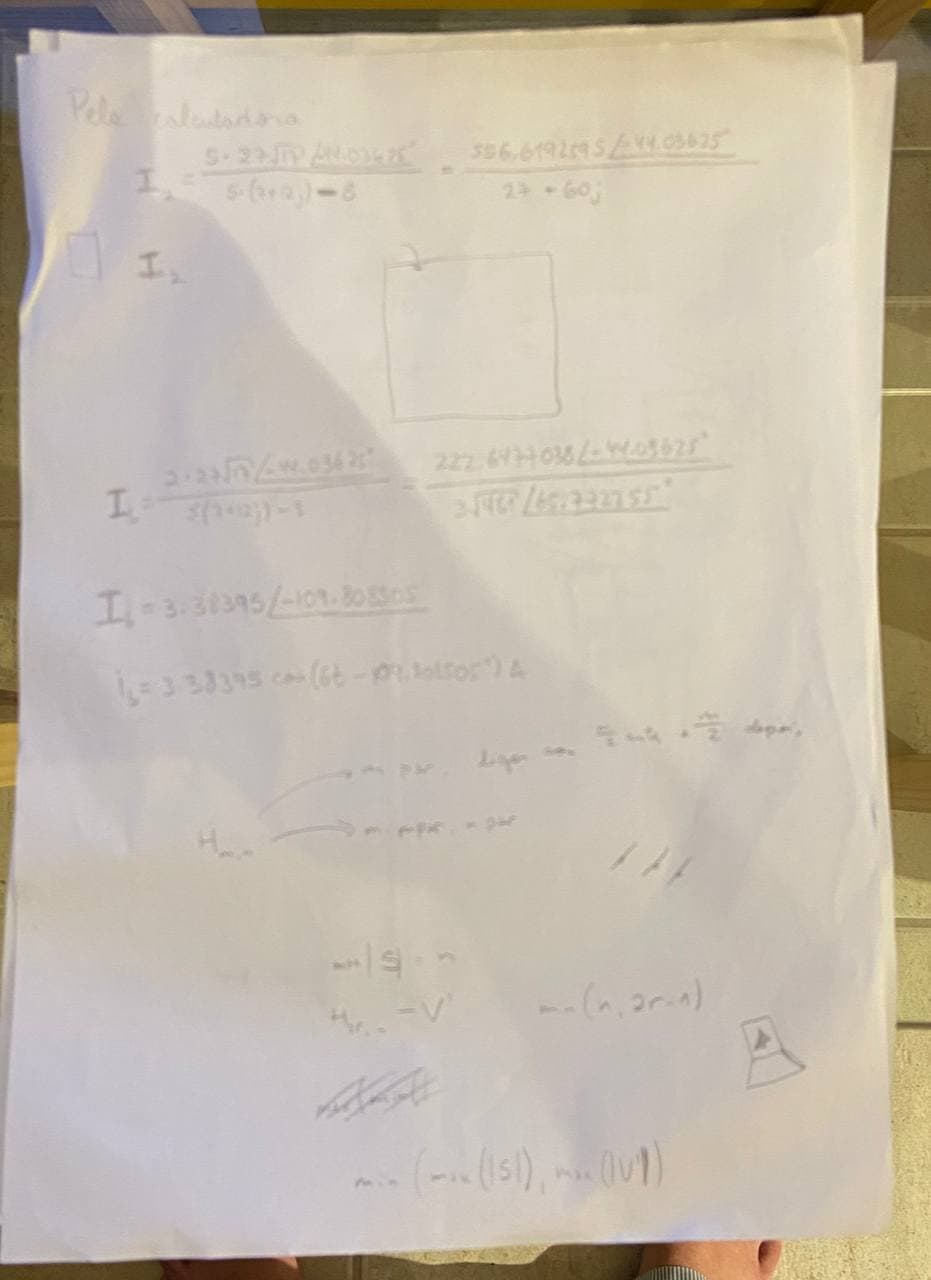 Pela calculadora
I₂ = 5·27√17 /-44.03625° / 5·(7+12j) - 8 = 556.6192595 /-44.03625° / 27 + 60j
I₂
I₃ = 2·27√17 /-44.03625° / 5(7+12j) - 8 = 222.6477038 /-44.03625° / 3√481 /65.772255°
I₃ = 3.38395 /-109.808505
i₃ = 3.38395 cos(6t - 109.808505°) A
m par.
H m,n
m ímpar, n par
max |S| = n
H 2r,n = V' min(n, 2r-1)
min(max(|S|), max(|V'|))